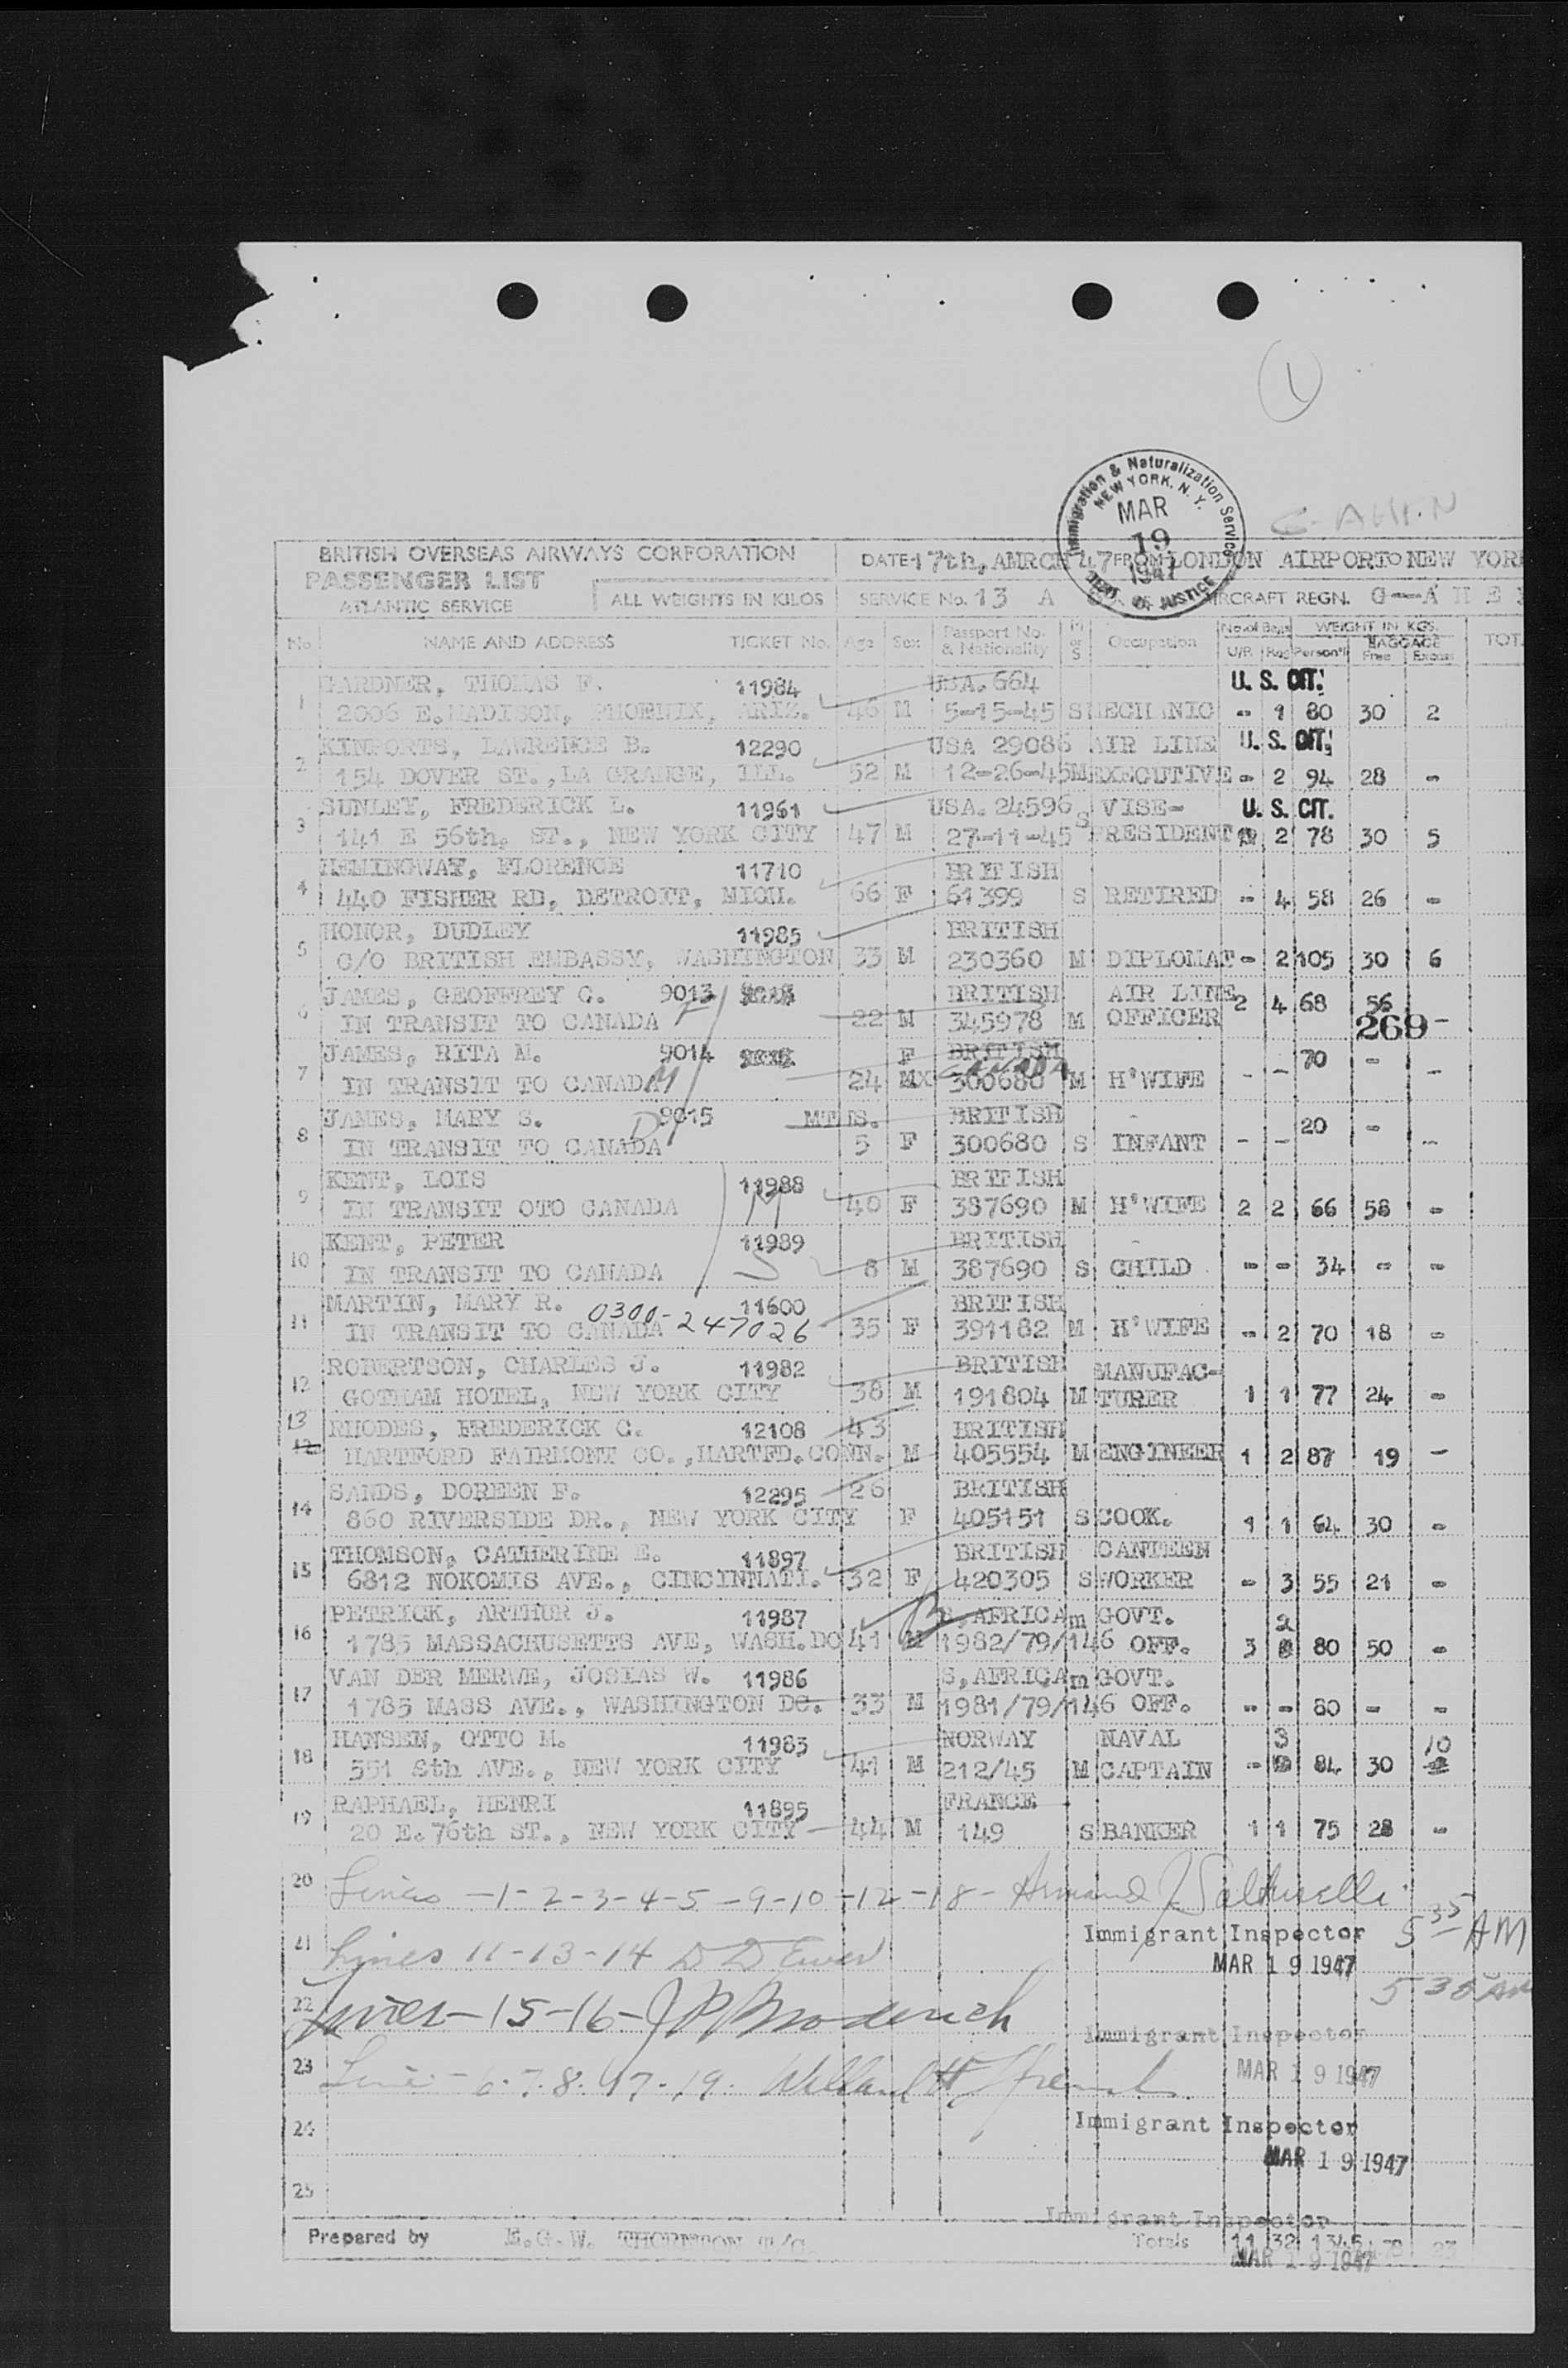 1
Immigration & Naturalization Service
NEW YORK, N. Y.
MAR
19
1947
DEPT OF JUSTICE
BRITISH OVERSEAS AIRWAYS CORPORATION DATE 17th, AMRCH 47 FROM LONDON AIRPORT TO NEW YORK
PASSENGER LIST
ATLANTIC SERVICE ALL WEIGHTS IN KILOS SERVICE No. 13 A AIRCRAFT REGN. G--AHE
No NAME AND ADDRESS TICKET No. Age Sex Passport No. & Nationality M or S Occupation No of Bags U/R Reg WEIGHT IN KGS. Person'l BAGGAGE Free Excess
1 GARDNER, THOMAS F. 11984 USA. 664 U. S. CIT.
2006 E.MADISON, PHOENIX, ARIZ. 46 M 5-15-45 S MECHANIC - 1 80 30 2
2 KINPORTS, LAWRENCE B. 12290 USA 29086 AIR LINE U. S. CIT.
154 DOVER ST.,LA GRANGE, ILL. 52 M 12-26-45 M EXECUTIVE - 2 94 28 -
3 SUNLEY, FREDERICK L. 11961 USA. 24596 S VISE- U. S. CIT.
141 E 56th, ST., NEW YORK CITY 47 M 27-11-45 PRESIDENT 2 78 30 5
4 HEMINGWAY, FLORENCE 11710 BRITISH
440 FISHER RD, DETROIT, MICH. 66 F 61399 S RETIRED - 4 58 26 -
5 HONOR, DUDLEY 11985 BRITISH
C/O BRITISH EMBASSY, WASHINGTON 33 M 230360 M DIPLOMAT - 2 105 30 6
6 JAMES, GEOFFREY C. 9013 BRITISH AIR LINE 2 4 68 56
IN TRANSIT TO CANADA 22 M 345978 M OFFICER 269 -
7 JAMES, RITA M. 9014 F BRITISH CANADA 70 -
IN TRANSIT TO CANADA M 24 MX 300680 M H'WIFE - - -
8 JAMES, MARY S. 9015 MTHS. BRITISH 20 -
IN TRANSIT TO CANADA 5 F 300680 S INFANT - - -
9 KENT, LOIS 11988 BRITISH
IN TRANSIT OTO CANADA M 40 F 387690 M H'WIFE 2 2 66 58 -
10 KENT, PETER 11989 BRITISH
IN TRANSIT TO CANADA S 8 M 387690 S CHILD - - 34 - -
11 MARTIN, MARY R. 11600 BRITISH
IN TRANSIT TO CANADA 0300-247026 35 F 391182 M H'WIFE - 2 70 18 -
12 ROBERTSON, CHARLES J. 11982 BRITISH MANUFAC-
GOTHAM HOTEL, NEW YORK CITY 38 M 191804 M TURER 1 1 77 24 -
13 RHODES, FREDERICK C. 12108 43 BRITISH
12 HARTFORD FAIRMONT CO.,HARTFD.CONN. M 405554 M ENGINEER 1 2 87 19 -
14 SANDS, DOREEN F. 12295 26 BRITISH
860 RIVERSIDE DR., NEW YORK CITY F 405151 S COOK. 1 1 64 30 -
15 THOMSON, CATHERINE E. 11897 BRITISH CANTEEN
6812 NOKOMIS AVE., CINCINNATI. 32 F 420305 S WORKER - 3 55 21 -
16 PETRICK, ARTHUR J. 11987 S,AFRICA m GOVT. 2
1785 MASSACHUSETTS AVE, WASH.DC 41 M 1982/79/146 OFF. 3 80 50 -
17 VAN DER MERWE, JOSIAS W. 11986 S,AFRICA m GOVT.
1785 MASS AVE., WASHINGTON DC. 33 M 1981/79/146 OFF. - - 80 - -
18 HANSEN, OTTO M. 11983 NORWAY NAVAL 3 10
351 8th AVE., NEW YORK CITY 41 M 212/45 M CAPTAIN - 84 30
19 RAPHAEL, HENRI 11895 FRANCE
20 E.76th ST., NEW YORK CITY 44 M 149 S BANKER 1 1 75 28 -
20 Lines -1-2-3-4-5-9-10-12-18- Armand J
Immigrant Inspector 5 35 AM
21 Lines 11-13-14 D D Ewer
MAR 19 1947
5 35 AM
22 Lines-15-16- J P Broderick
Immigrant Inspector
23 Line - 6.7.8.17.19. Willard H French
MAR 19 1947
24 Immigrant Inspector
MAR 19 1947
25
Immigrant Inspector
Prepared by E.G.W. THORNTON Totals 11 32 1345 23
MAR 19 1947